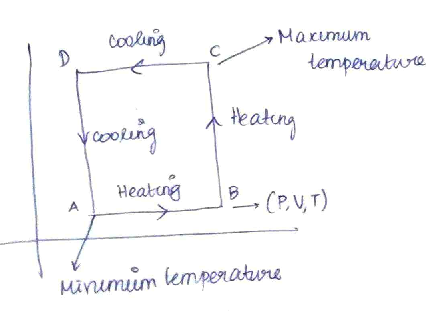 cooling
D
C
Maximum
temperature
cooling
Heating
Heating
A
B
(P, V, T)
Minimum temperature